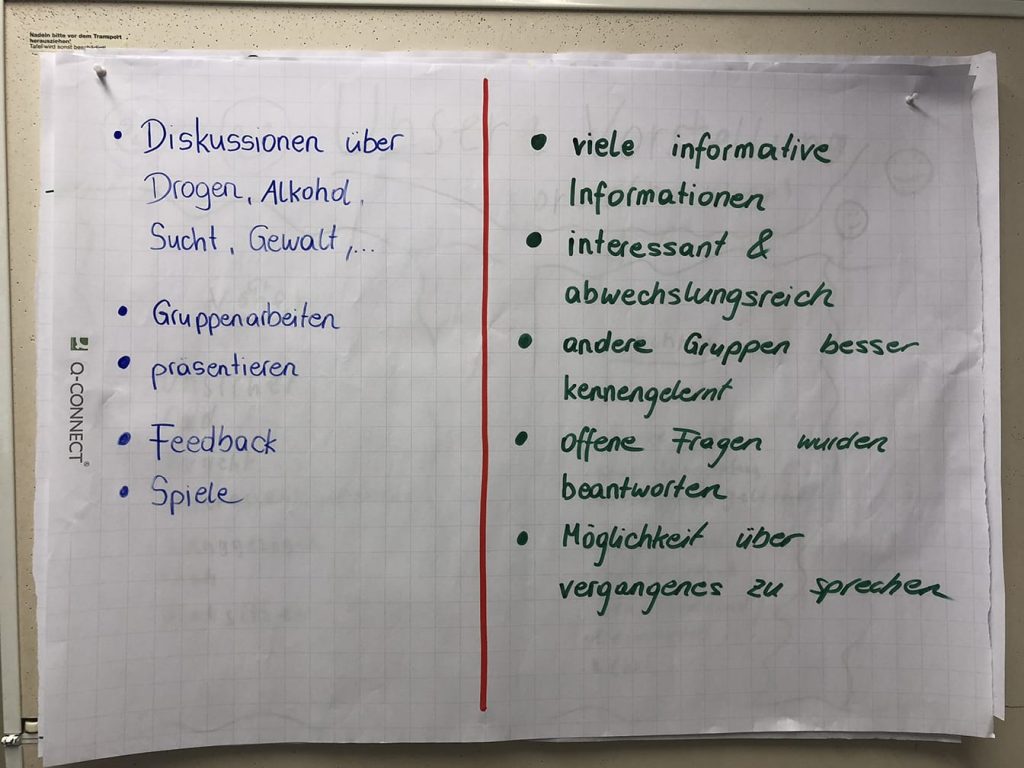 Nadeln bitte vor dem Transport
herausziehen!
Tafel wird sonst beschädigt!
• Diskussionen über
Drogen, Alkohol,
Sucht, Gewalt,...
• Gruppenarbeiten
• präsentieren
• Feedback
• Spiele
Q-CONNECT®
• viele informative
Informationen
• interessant &
abwechslungsreich
• andere Gruppen besser
kennengelernt
• offene Fragen wurden
beantworten
• Möglichkeit über
vergangenes zu sprechen